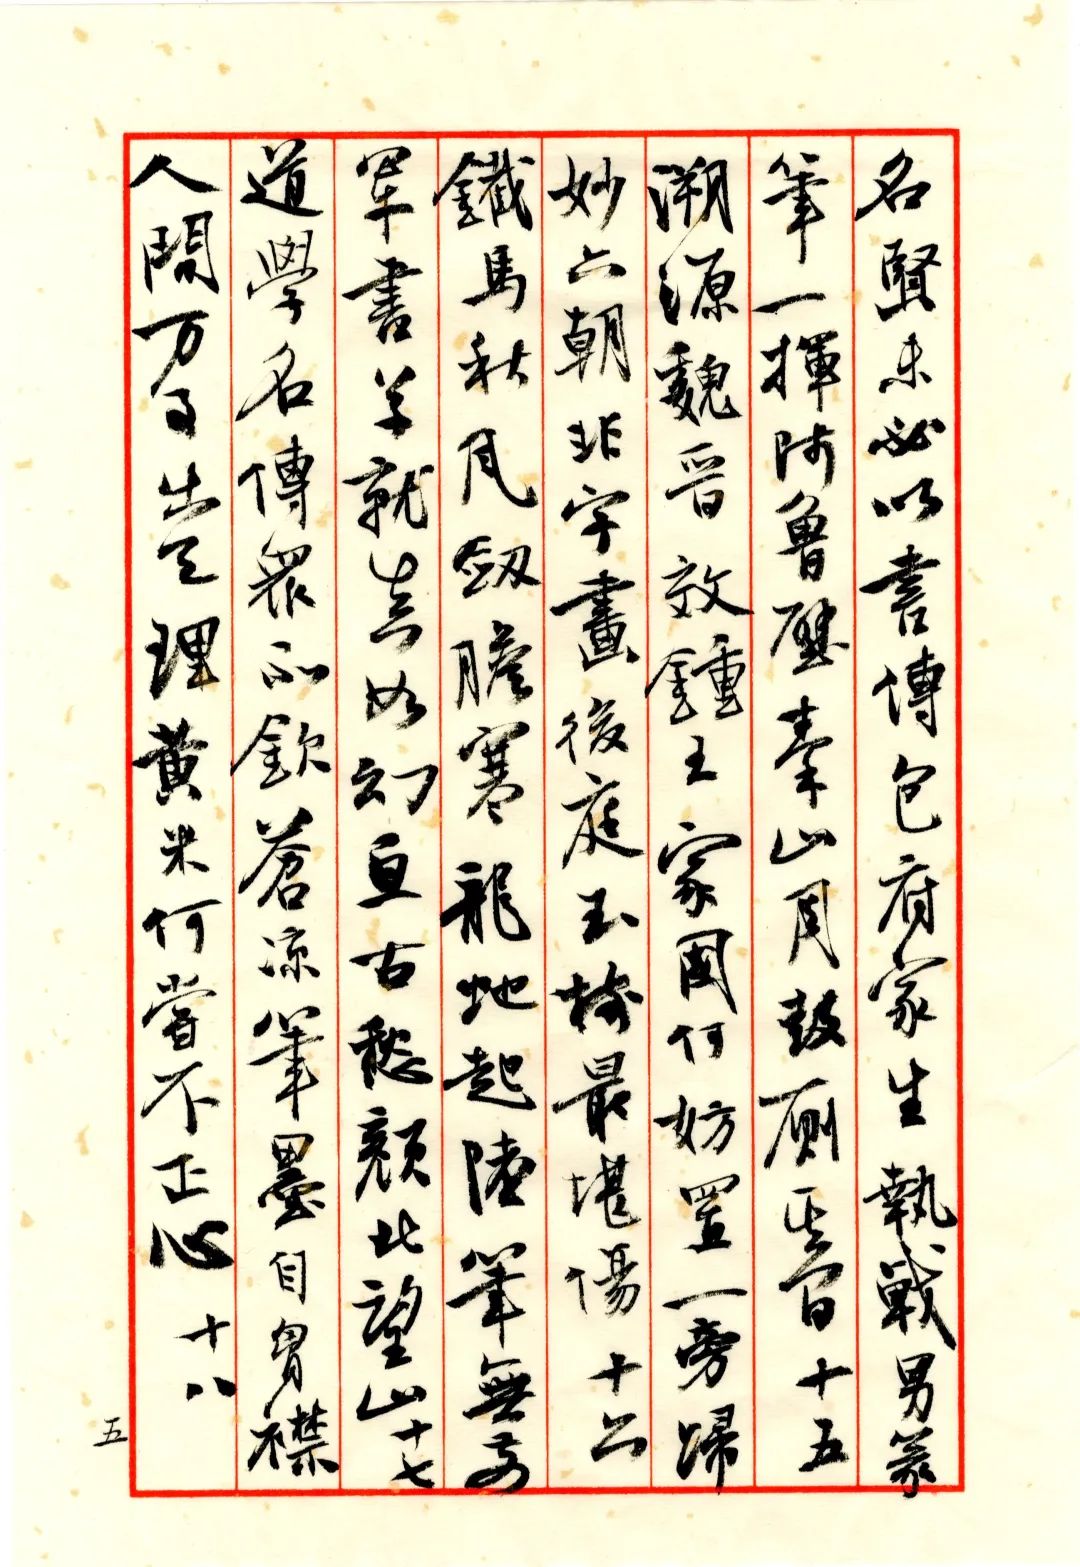 名賢未必以書傳包府家生執戟男篆
筆一揮時魯壁秦山周鼓厠其間十五
溯源魏晉效鍾王家國何妨置一旁歸
妙六朝非字畫後庭玉樹最堪傷十六
鐵馬秋風劔膽寒龍虵起陸筆無安
軍書草就真如幻亘古愁顏北望山十七
道學名傳衆所欽蒼凉筆墨自胷襟
人間万事出天理黄米何嘗不正心 十八
五